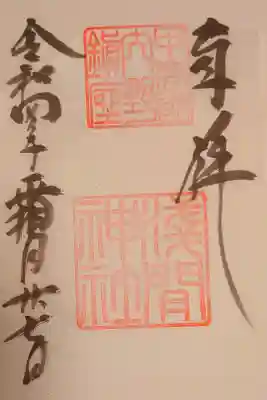 奉拝
淺間神社
令和四年霜月廿七日